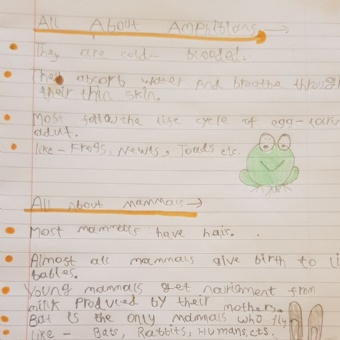 All About Amphibians
They are cold- blooded.
They absorb water and breathe through
their thin skin.
Most follow the life cycle of egg-larva
adult.
like - Frogs, Newts, Toads etc.
All about mammals
Most mammals have hair.
Almost all mammals give birth to li
babies.
Young mammals get narisment from
milk produced by their mothers.
Bat is the only mammals who fly
like - Bats, Rabbits, Humans, cts.